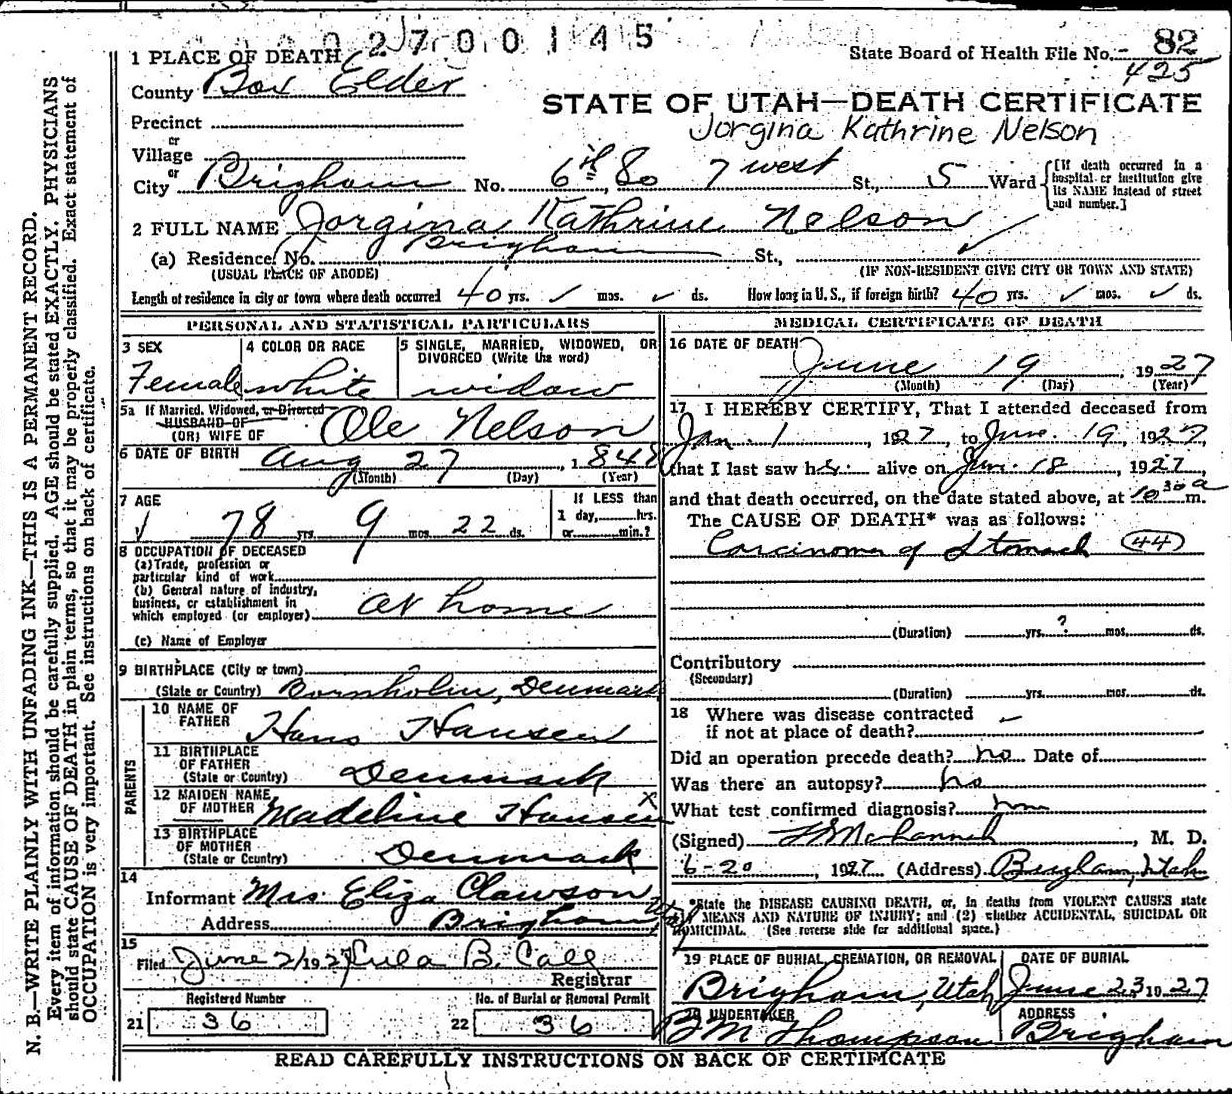 2700145
State Board of Health File No. 82
425
1 PLACE OF DEATH
County Box Elder
STATE OF UTAH—DEATH CERTIFICATE
Precinct
Jorgina Kathrine Nelson
or
Village
or
City Brigham No. 6th So 7 west St., 5 Ward
[If death occurred in a hospital or institution give its NAME instead of street and number.]
2 FULL NAME Jorgina Kathrine Nelson
(a) Residence, No. Brigham St.,
(USUAL PLACE OF ABODE) (IF NON-RESIDENT GIVE CITY OR TOWN AND STATE)
Length of residence in city or town where death occurred 40 yrs. ✓ mos. ✓ ds. How long in U. S., if foreign birth? 40 yrs. ✓ mos. ✓ ds.
PERSONAL AND STATISTICAL PARTICULARS
3 SEX
Female
4 COLOR OR RACE
white
5 SINGLE, MARRIED, WIDOWED, OR
DIVORCED (Write the word)
widow
5a If Married, Widowed, or Divorced
HUSBAND OF
(OR) WIFE OF Ole Nelson
6 DATE OF BIRTH Aug 27, 1848
(Month) (Day) (Year)
7 AGE
78 yrs. 9 mos. 22 ds.
If LESS than
1 day, hrs.
or min.?
8 OCCUPATION OF DECEASED
(a) Trade, profession or
particular kind of work
(b) General nature of industry,
business, or establishment in
which employed (or employer) at home
(c) Name of Employer
9 BIRTHPLACE (City or town)
(State or Country) Bornholm, Denmark
PARENTS
10 NAME OF
FATHER Hans Hansen
11 BIRTHPLACE
OF FATHER
(State or Country) Denmark
12 MAIDEN NAME
OF MOTHER Madeline Hansen x
13 BIRTHPLACE
OF MOTHER
(State or Country) Denmark
14
Informant Mrs. Eliza Clawson
Address Brigham Utah
15
Filed June 21 1927 Lula B. Call
Registrar
Registered Number
21 36
No. of Burial or Removal Permit
22 36
MEDICAL CERTIFICATE OF DEATH
16 DATE OF DEATH
June 19, 1927
(Month) (Day) (Year)
17 I HEREBY CERTIFY, That I attended deceased from
Jan. 1, 1927, to June. 19, 1927,
that I last saw her alive on Jun. 18, 1927,
and that death occurred, on the date stated above, at 10 30 a m.
The CAUSE OF DEATH* was as follows:
Carcinoma of Stomach (44)
(Duration) yrs. ? mos. ds.
Contributory
(Secondary)
(Duration) yrs. mos. ds.
18 Where was disease contracted
if not at place of death?
Did an operation precede death? no Date of
Was there an autopsy? no
What test confirmed diagnosis?
(Signed) M. D.
6-20, 1927 (Address) Brigham, Utah
*State the DISEASE CAUSING DEATH, or, in deaths from VIOLENT CAUSES state
MEANS AND NATURE OF INJURY; and (2) whether ACCIDENTAL, SUICIDAL OR
HOMICIDAL. (See reverse side for additional space.)
19 PLACE OF BURIAL, CREMATION, OR REMOVAL
Brigham, Utah
DATE OF BURIAL
June 23 1927
20 UNDERTAKER
B M Thompson
ADDRESS
Brigham
READ CAREFULLY INSTRUCTIONS ON BACK OF CERTIFICATE
N. B.—WRITE PLAINLY WITH UNFADING INK—THIS IS A PERMANENT RECORD.
Every item of information should be carefully supplied. AGE should be stated EXACTLY. PHYSICIANS
should state CAUSE OF DEATH in plain terms, so that it may be properly classified. Exact statement of
OCCUPATION is very important. See instructions on back of certificate.